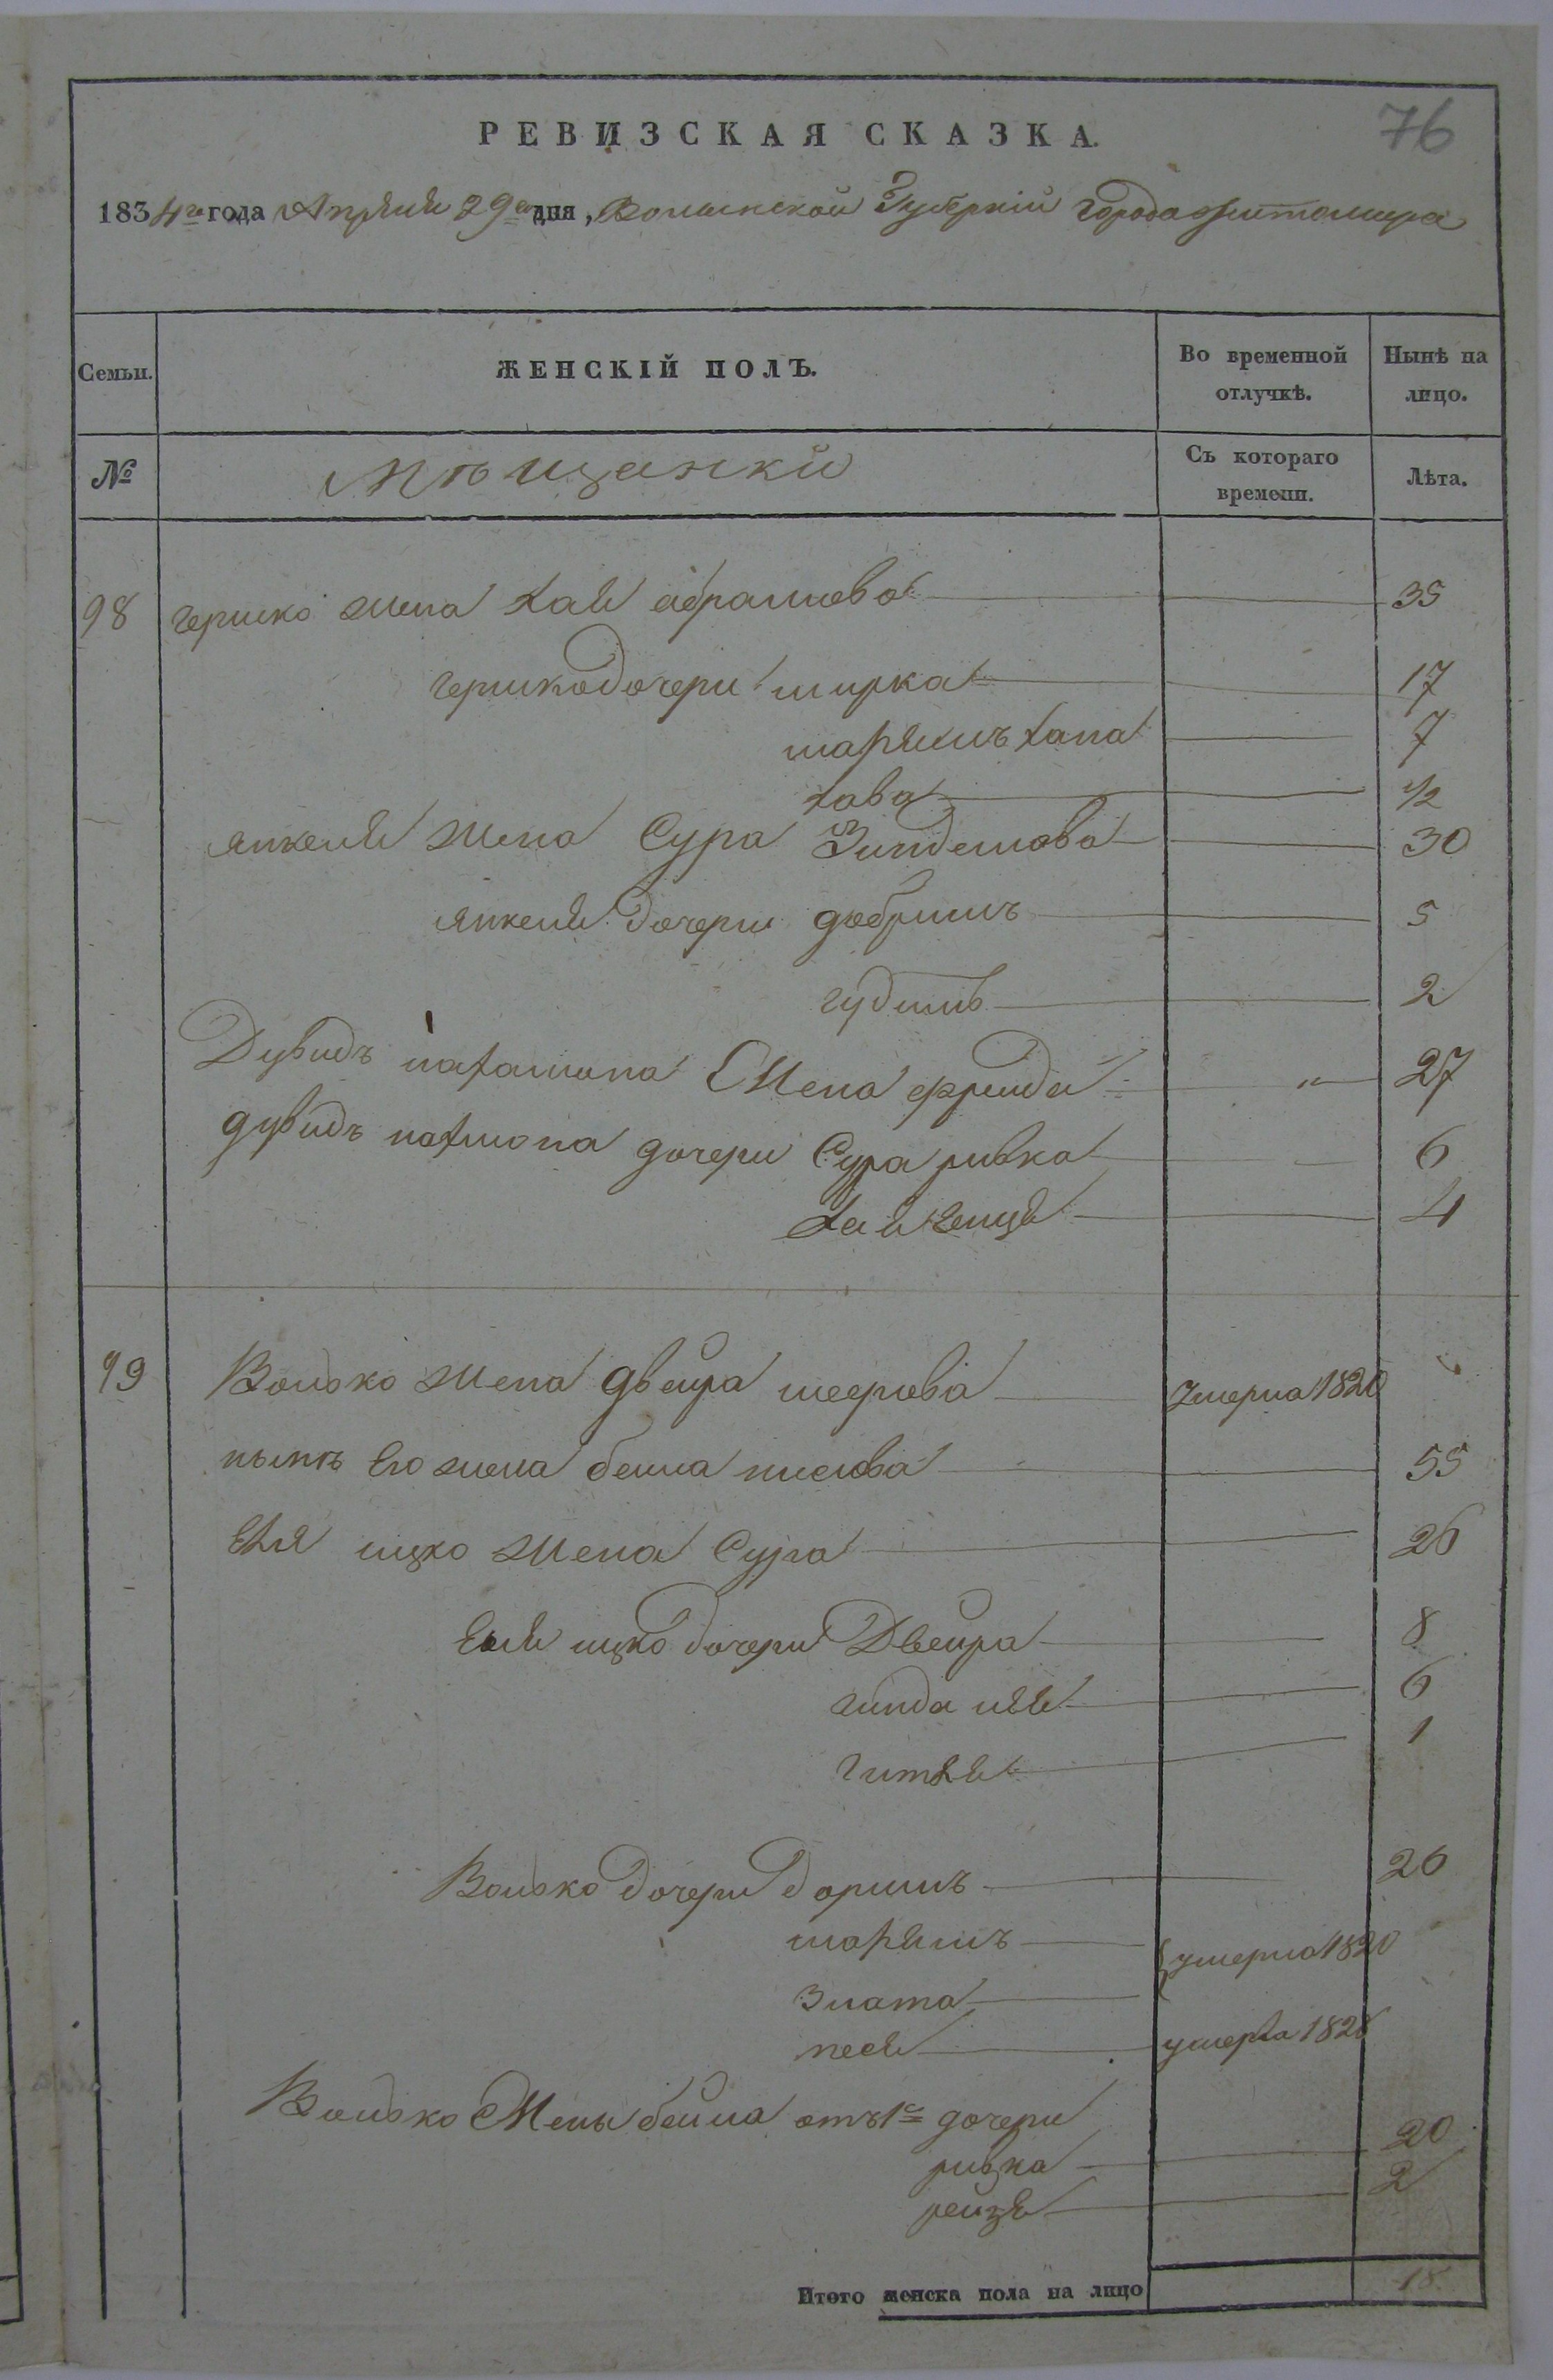 76
РЕВИЗСКАЯ СКАЗКА.
1834го года Апреля 29го дня, Волынской Губерніи Города Житомира
Семьи. ЖЕНСКІЙ ПОЛЪ. Во временной отлучкѣ. Нынѣ на лицо.
№ Мѣщанки Съ котораго времени. Лѣта.
98 гершко жена хая абрамова 35
гершко дочери ширка 17
марямъ хана 7
хава 1/2
янкеля жена Сура Зинделова 30
янкеля дочери добришъ 5
гудиль 2
Дувидъ нахамона Жена фрейда " 27
дувидъ нахмона дочери Сура ривка 6
хая 4
99 Волько жена двейра меерова Умерла 1820
нынѣ Его жена бейла 55
Еля ицко жена Сура 26
Еля ицко дочери Двейра 8
гинда 6
1
Волько дочери доришъ 26
марямъ {умерла 1820
Злата
песя умерла 1828
Волько Жены бейла отъ 1го дочери
ривка 20
рейзя 2
Итого женска пола на лицо 18